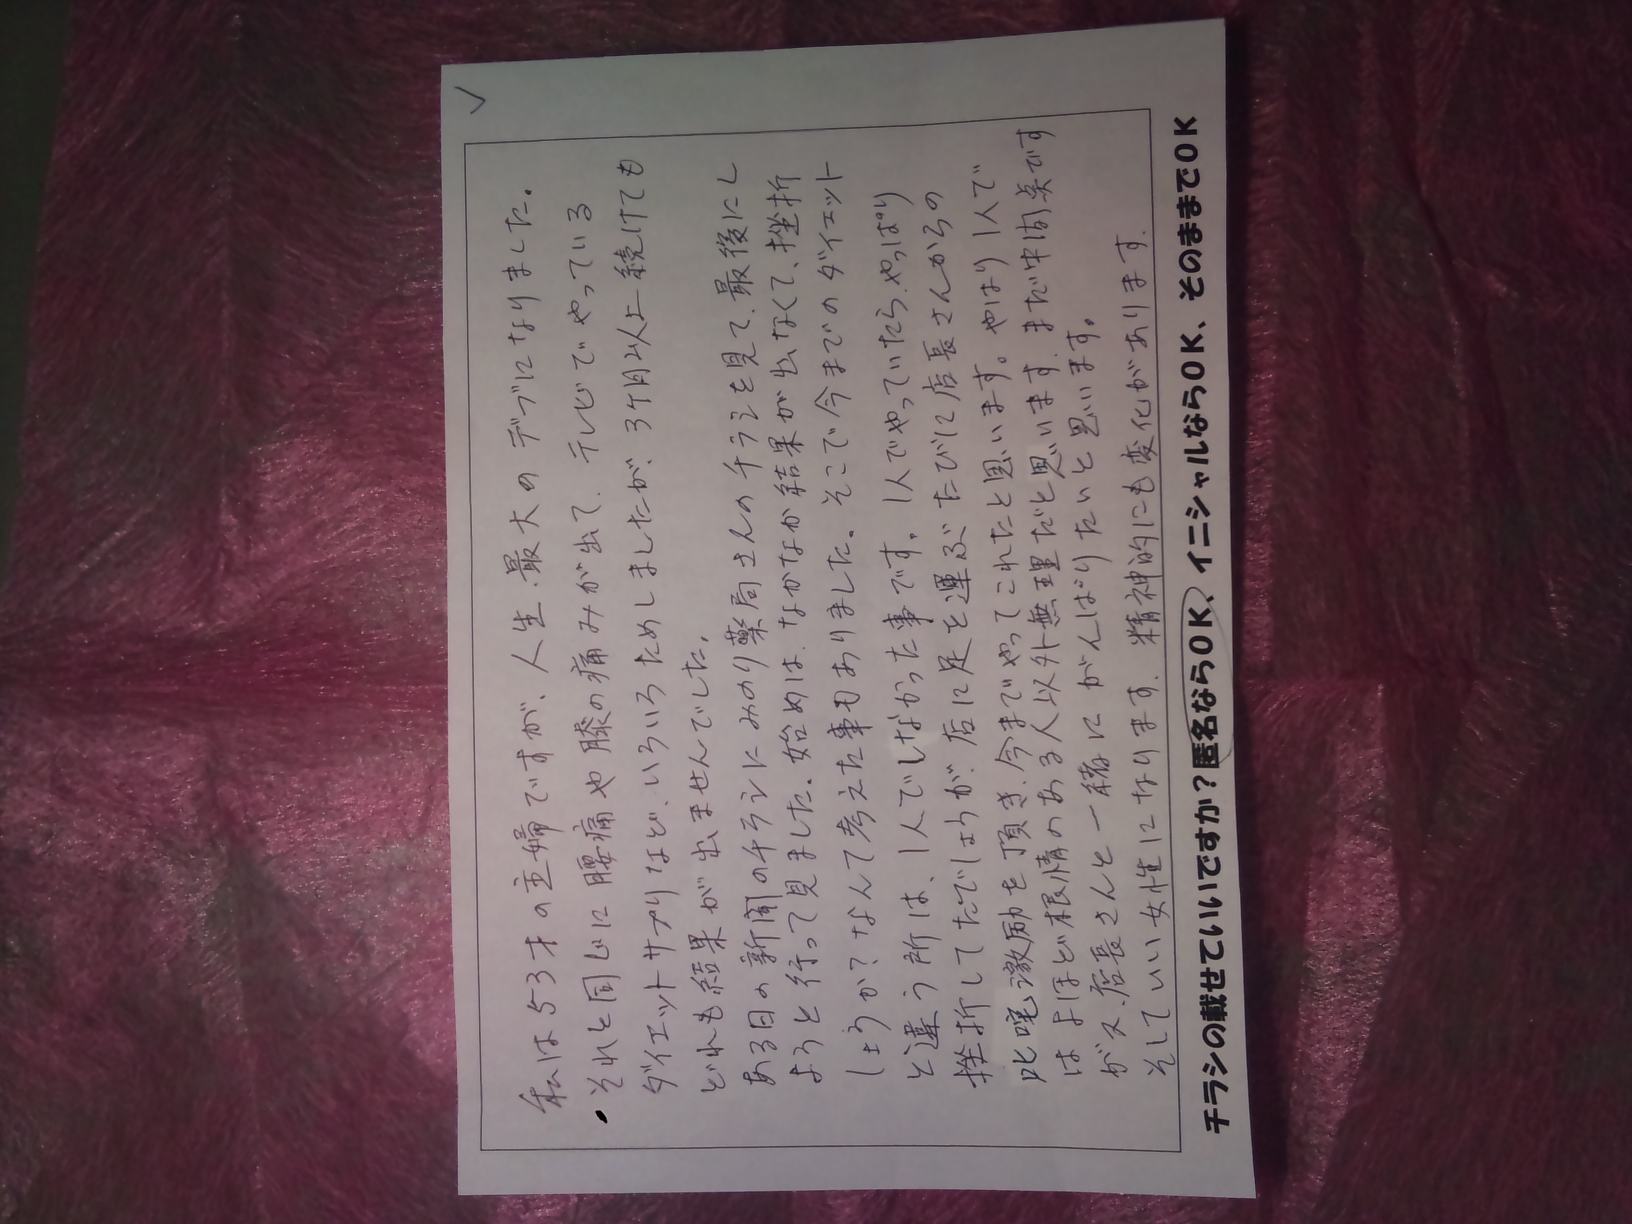 私は53才の主婦ですが、人生、最大のデブになりました。
それと同じに腰痛や膝の痛みが出て、テレビでやっている
ダイエットサプリなど、いろいろためしましたが、3ケ月以上続けても
どれも結果が出ませんでした。
ある日の新聞のチラシにみのり薬局さんのチラシを見て、最後にし
ようと行って見ました。始めは、なかなか結果が出なくて、挫折
しようか?なんて考えた事もありました。そこで今までのダイエット
と違う所は、1人でしなかった事です。1人でやっていたら、やっぱり
挫折してたでしょうが、店に足を運ぶたびに店長さんからの
叱咤激励を頂き、今までやってこれたと思います。やはり1人で
はよほど根情のある人以外無理だと思います。まだ中間点です
がヌ、店長さんと一緒にがんばりたいと思います。
そしていい女性になります。精神的にも変化があります。
チラシの載せていいですか?匿名ならOK、イニシャルならOK、そのままでOK